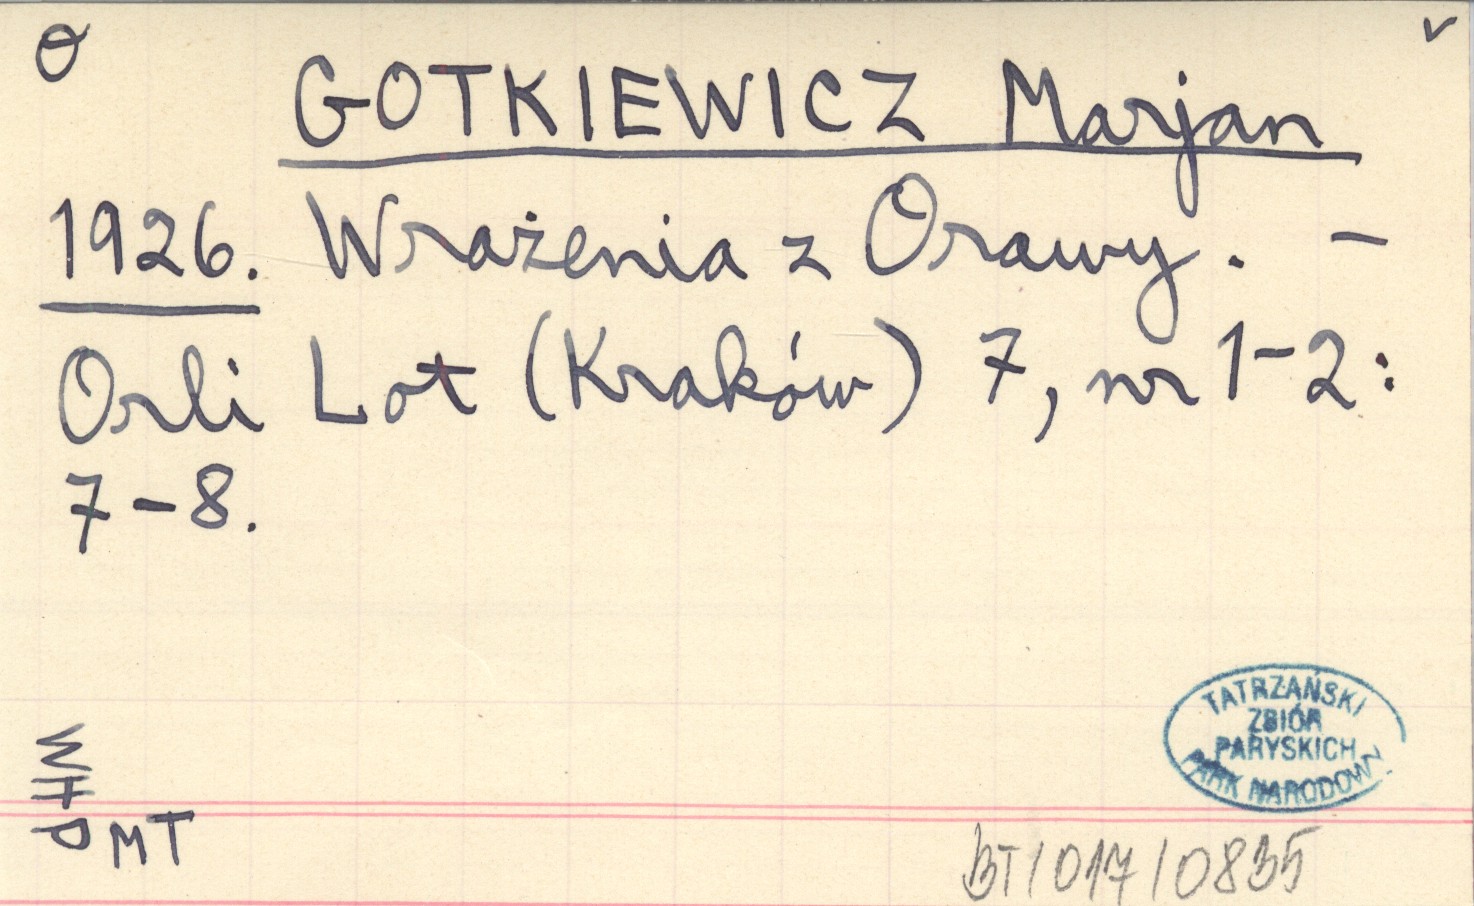 O
v
GOTKIEWICZ Marjan
1926. Wrażenia z Orawy. –
Orli Lot (Kraków) 7, nr 1-2:
7-8.
TATRZAŃSKI
ZBIÓR
PARYSKICH
PARK NARODOWY
WHP
MT
BT/017/0835